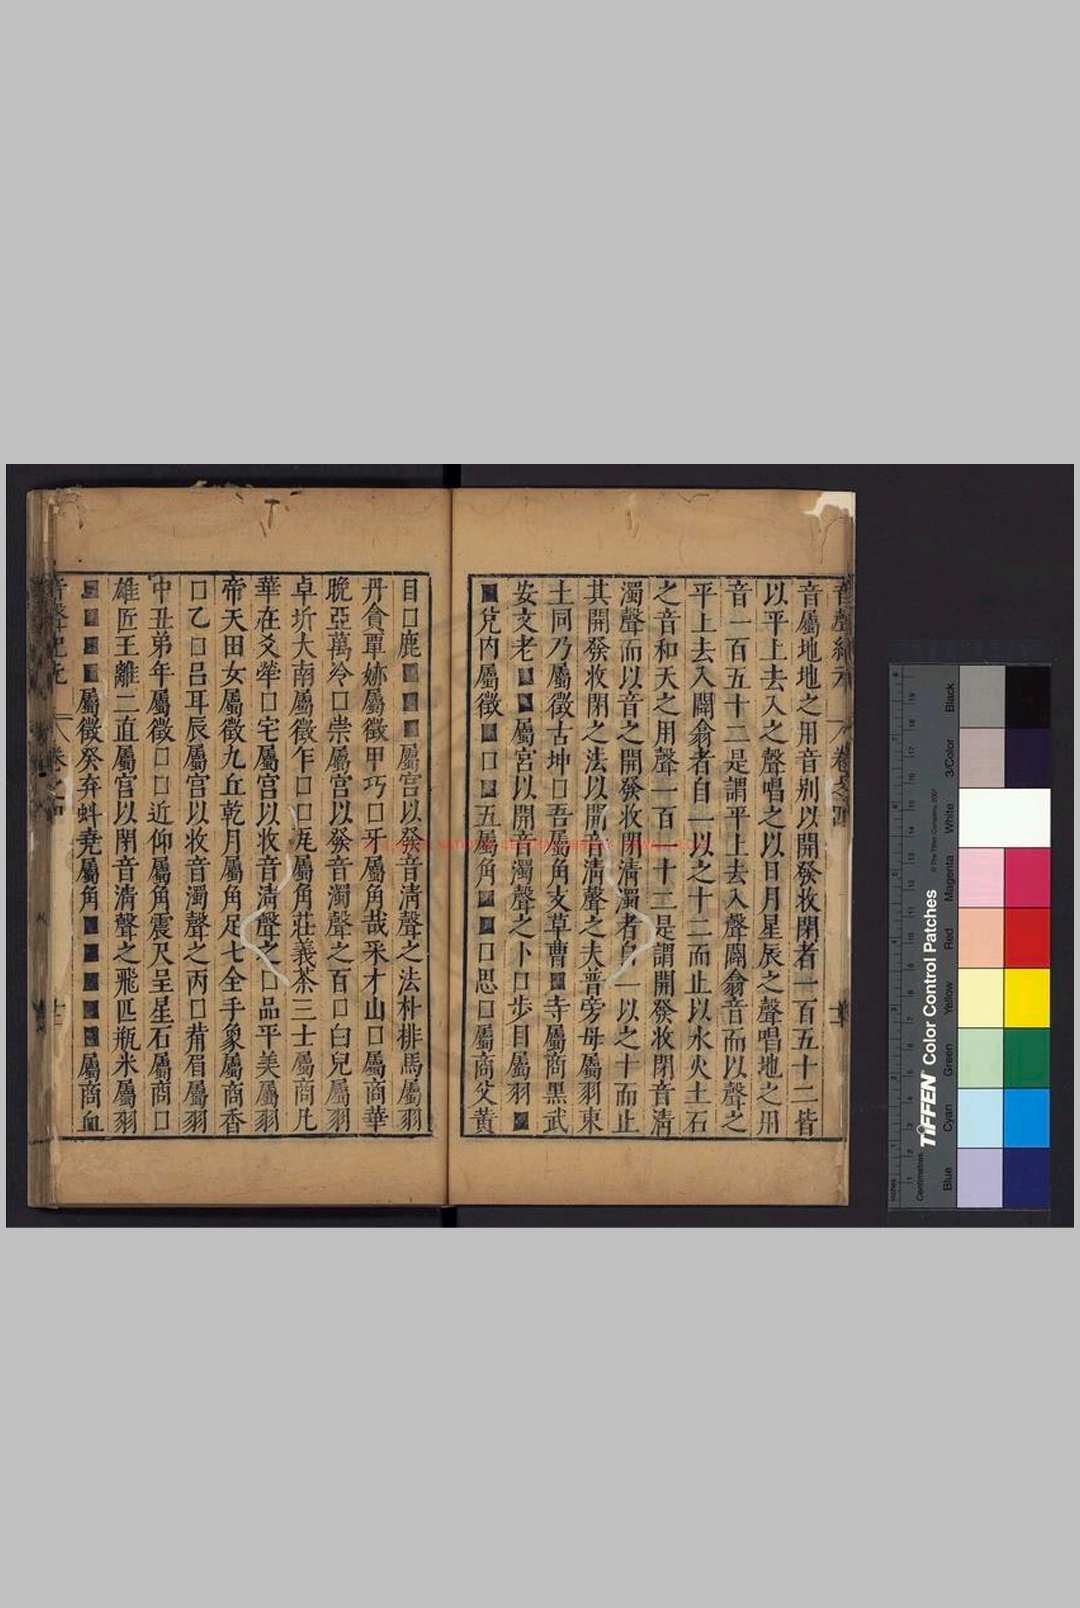 音屬地地之用音别以開發收閉者一百五十二皆
以平上去入之聲唱之以日月星辰之聲唱地之用
音一百五十二是謂平上去入聲闢翕音而以聲之
平上去入闢翕者自一以之十二而止以水火土石
之音和天之用聲一百一十二是謂開發收閉音清
濁聲而以音之開發收閉清濁者自一以之十而止
其開發收閉之法以開音清聲之夫普旁母屬羽東
土同乃屬徵古坤□吾屬角攴草曹■寺屬商黑武
安文老■■屬宮以開音濁聲之卜□步目屬羽■
■兌内屬徵■□■五屬角■□思□屬商父黄
目□鹿■■■屬宮以發音清聲之法朴排馬屬羽
丹貪覃妳屬徵甲巧□牙屬角哉采才山□屬商華
晚亞萬冷□崇屬宮以發音濁聲之百□白皃屬羽
卓圻大南屬徵乍□□厇屬角莊義茶三士屬商凡
華在爻犖□宅屬宮以收音清聲之□品平美屬羽
帝天田女屬徵九丘乾月屬角足七全手象屬商香
□乙□吕耳辰屬宮以收音濁聲之丙□葡眉屬羽
中丑弟年屬徵□□近仰屬角震尺呈星石屬商□
雄匠王離二直屬宮以閉音清聲之飛匹瓶米屬羽
■■■■屬徵癸弃蚪堯屬角■■■■■屬商血
Tiffen Color Control Patches
© The Tiffen Company, 2007
Centimetres
Inches
Blue
Cyan
Green
Yellow
Red
Magenta
White
3/Color
Black